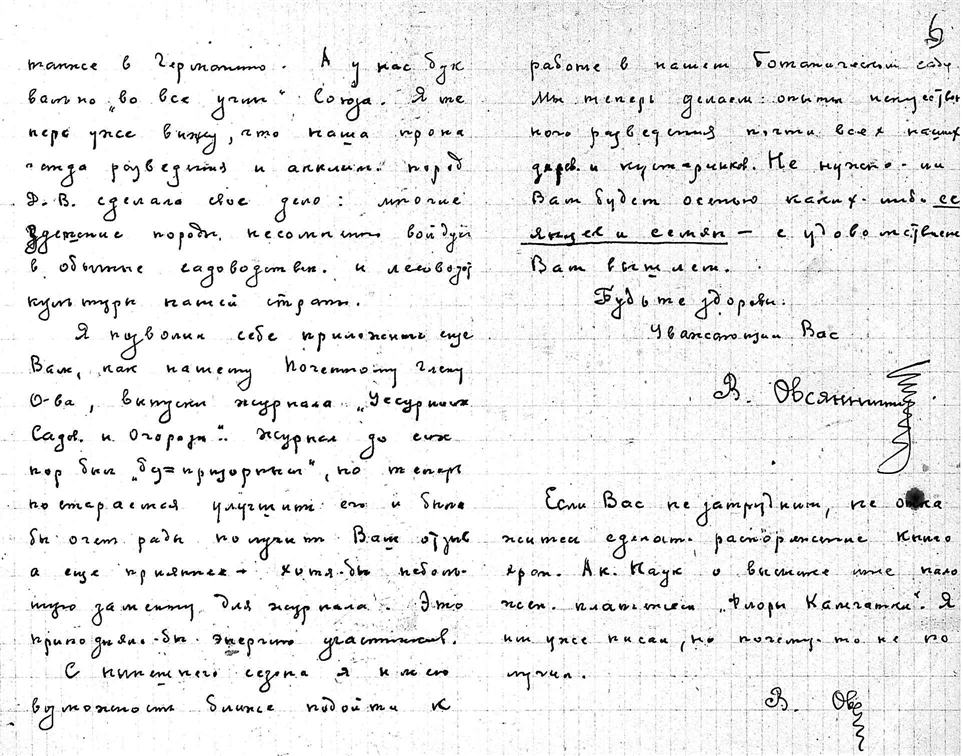 также в Германию. А у нас бук
вально „во все углы“ Союза. Я те
перь уже вижу, что наша пропа
ганда разведения и акклим. пород
Д. В. сделала свое дело: многие
здешние породы несомненно войдут
в обычные садоводствен. и лесовод.
культуры нашей страны.
Я позволил себе приложить еще
Вам, как нашему Почетному Члену
О-ва, выпуски журнала „Уссурийск
Садов. и Огородн“. Журнал до сих
пор был „без=призорный“, но теперь
постараемся улучшит его и были
бы очен рады получит Ваш отзыв
а еще приятнее – хотя-бы неболь-
шую заметку для журнала. Это
приподняло-бы энергию участников.
С нынешнего сезона я имею
возможность ближе подойти к
5
работе в нашем Ботаническом саду.
Мы теперь делаем опыты искуствен
ного разведения почти всех наших
дерев. и кустарников. Не нужно-ли
Вам будет осенью каких-либо се
янцев и семян – с удовольствием
Вам вышлем.
Будьте здоровы.
Уважающий Вас
В. Овсянников
Если Вас не затруднит, не отка
житесь сделат. распоряжение Книго
хран. Ак. Наук о высылке мне нало
жен. платежем „Флоры Камчатки“. Я
им уже писал, но почему-то не по
лучил.
В. Овс